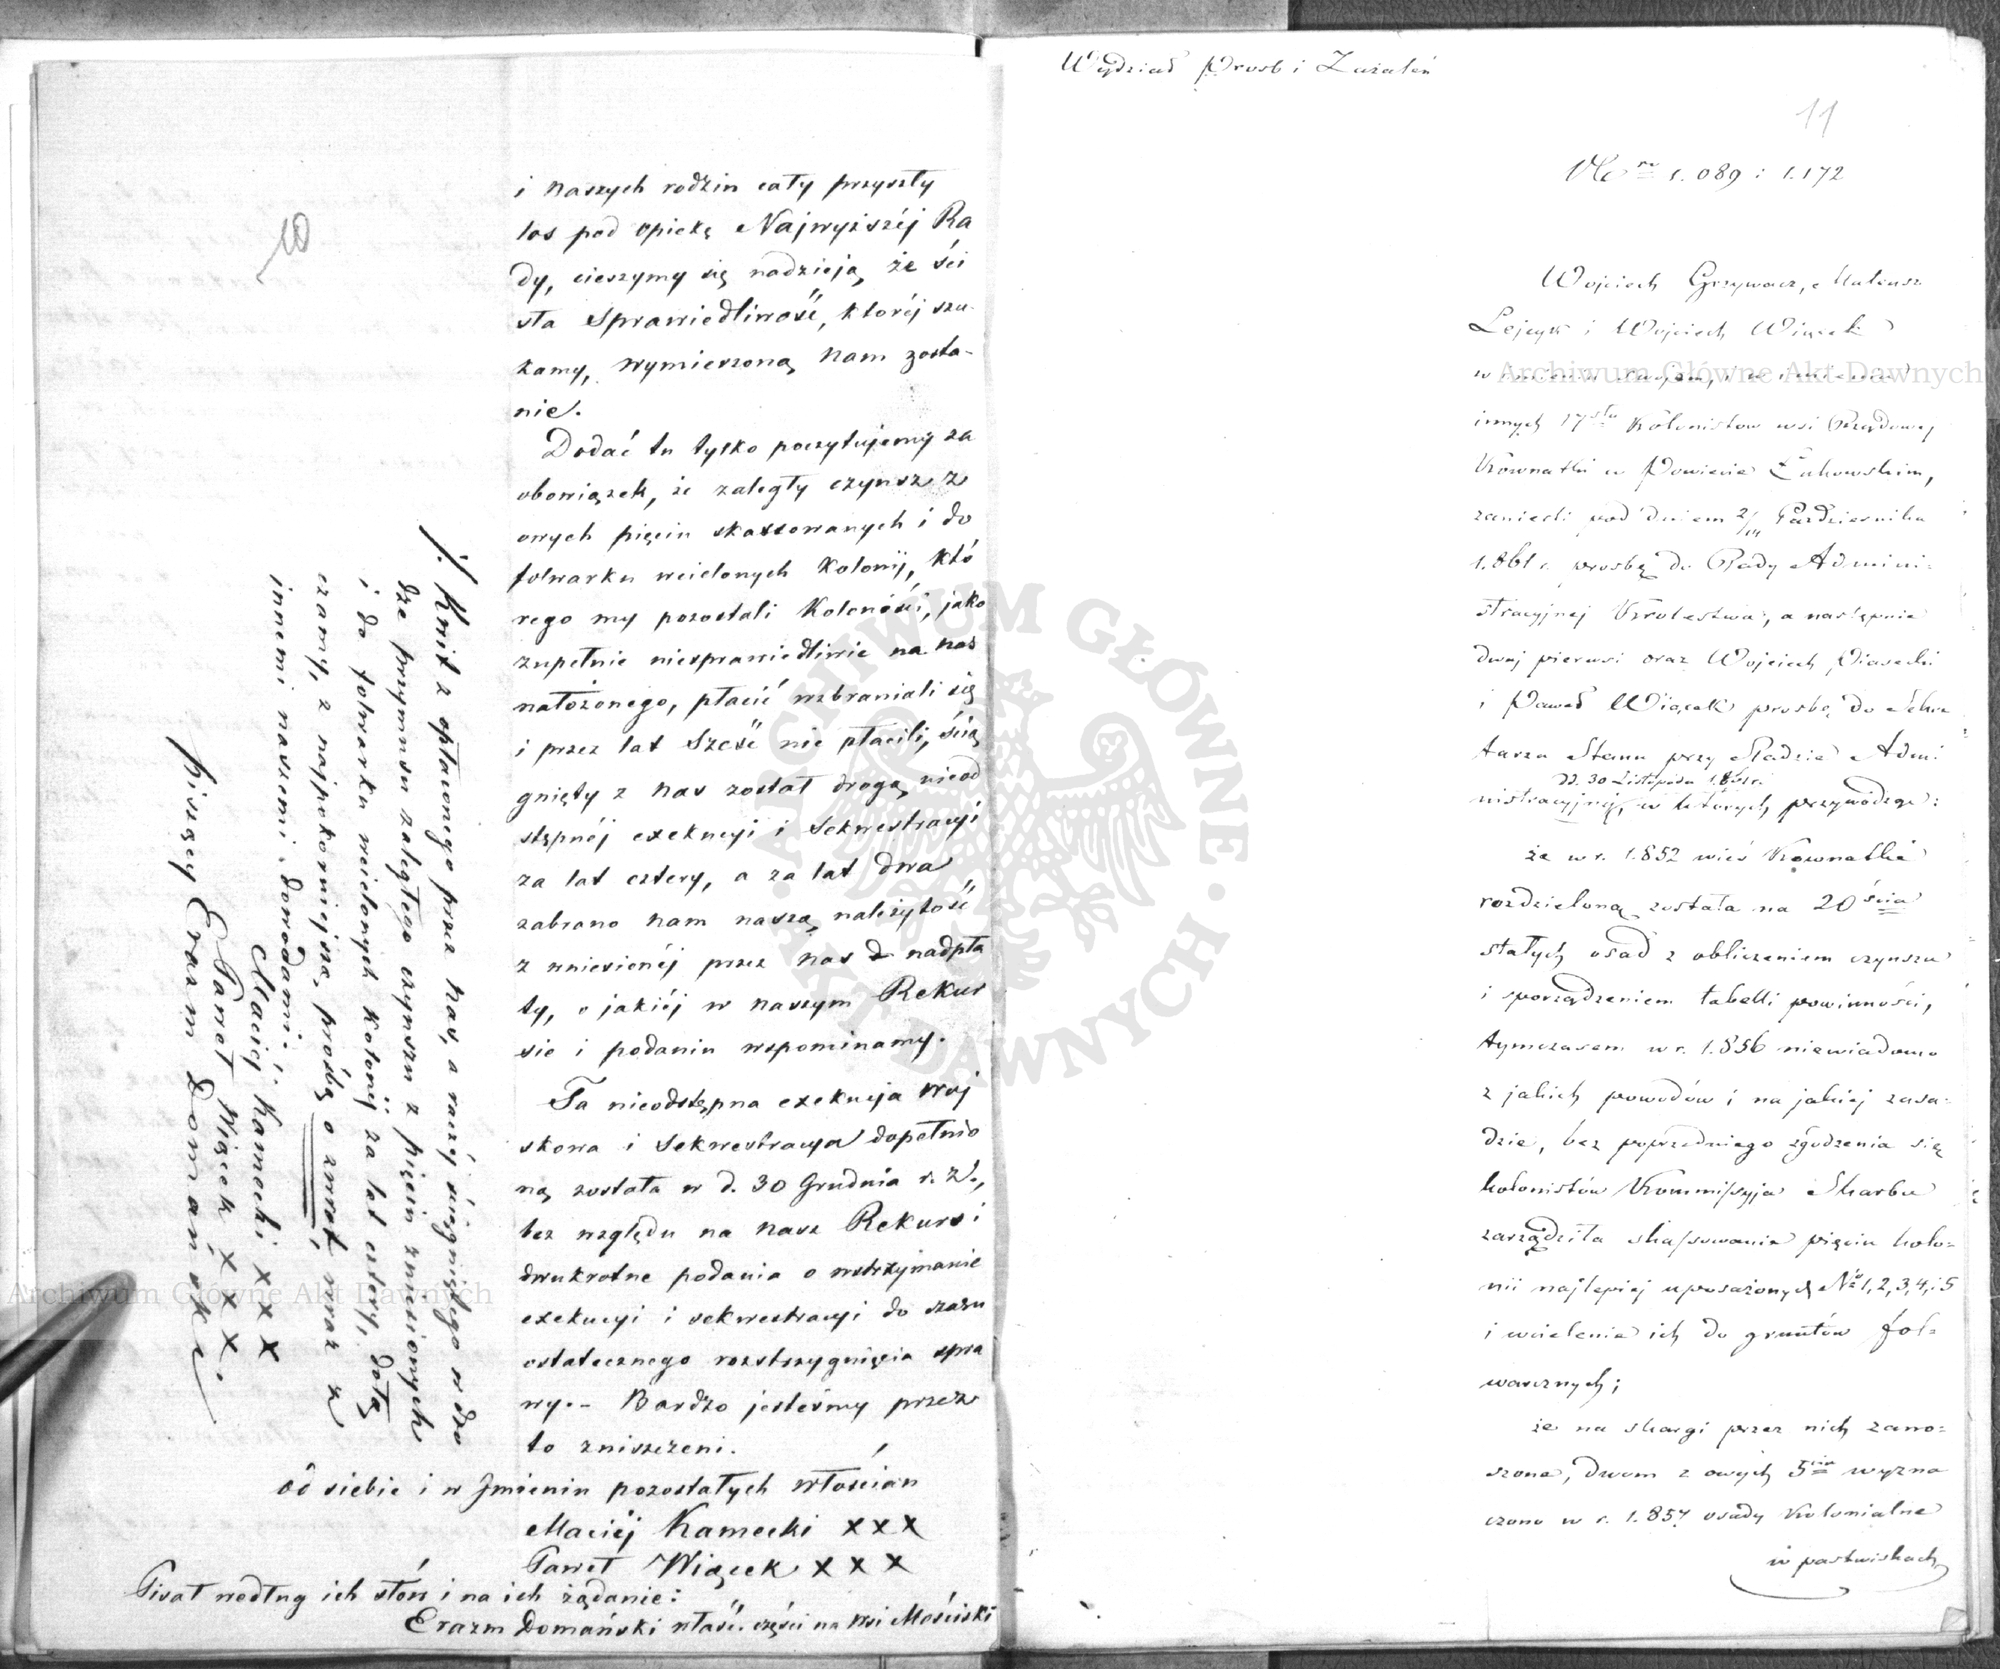 10
i naszych rodzin cały przyszły
los pod opieką Najwyższéj Ra
dy, cieszymy się nadzieją, że ści
sła Sprawiedliwość, któréj szu-
kamy, wymierzoną nam zosta-
nie.
Dodać tu tylko poczytujemy za
obowiązek, że zaległy czynsz z
owych pięciu skassowanych i do
folwarku wcielonych Kolonij, któ
rego my pozostali Koloniści, jako
zupełnie niesprawiedliwie na nas
nałożonego, płacić wzbraniali się
i przez lat Sześć nie płacili, ścią
gnięty z nas został drogą nieod
stępnéj exekucyi i Sekwestracyi
za lat cztery, a za lat dwa
zabrano nam naszą należytość
z wniesionéj przez nas nadpła
ty, o jakiéj w naszym Rekur
sie i podaniu wspominamy.
Ta nieodstępna exekucja woj
skowa i Sekwestracya dopełnio
ną została w d. 30 Grudnia r. z.,
bez względu na nasz Rekurs i
dwukrotne podania o wstrzymanie
exekucyi i sekwestracyi do czasu
ostatecznego rozstrzygnięcia spra
wy.- Bardzo jesteśmy przez
to zniszczeni.
od siebie i w Imieniu pozostałych włościan
Maciéj Kamecki XXX
Paweł Wiącek XXX
Pisał według ich słów i na ich żądanie:
Erazm Domański właść. części na wsi Mościski
j. Kwit z opłaconego przez nas, a raczéj ściągniętego w dro
dze przymusu zaległego czynszu z pięciu zniesionych
i do folwarku wcielonych Kolonij za lat cztery, dołą
czamy, z najpokorniejszą prośbą o zwrot, wraz z
innemi naszemi dowodami.
Maciéj Kamecki XXX
Paweł Wiącek XXX.
piszący Erazm Domański
Wydział Prosb i Zażaleń
11
No 1.089 : 1.172
Wojciech Grzywacz, Mateusz
Lejczyk i Wojciech Wiącek
w imieniu swojem, i w imieniu
innych 17stu Kolonistow wsi Rządowej
Krównatki w Powiecie Łukowskim,
zanieśli pod dniem 2/14 Października
1.861 r. prosbę do Rady Admini-
stracyjnej Krolestwa, a następnie
dwaj pierwsi oraz Wojciech Piasecki
i Paweł Wiącek prosbę do Sekre
tarza Stanu przy Radzie Admi
dd. 30 Listopada 1.861 r.
nistracyjnej, w ktorych przywodzą:
że w r. 1.852 wieś Krownatka
rozdzieloną została na 20ścia
stałych osad z obliczeniem czynszu
i sporządzeniem tabelli powinności,
tymczasem w r. 1.856 niewiadomo
z jakich powodów i na jakiej zasa-
dzie, bez poprzedniego zgodzenia się
kolonistów Kommissyja Skarbu
zarządziła skassowanie pięciu kolo-
nii najlepiej uposażonych No 1, 2, 3, 4, i 5
i wcielenie ich do gruntów fol-
warcznych;
że na skargi przez nich zano-
szone, dwom z owych 5ciu wyzna
czono w r. 1.857 osady kolonialne
w pastwiskach
Archiwum Główne Akt Dawnych
Archiwum Główne Akt Dawnych
ARCHIWUM GŁÓWNE · AKT DAWNYCH ·